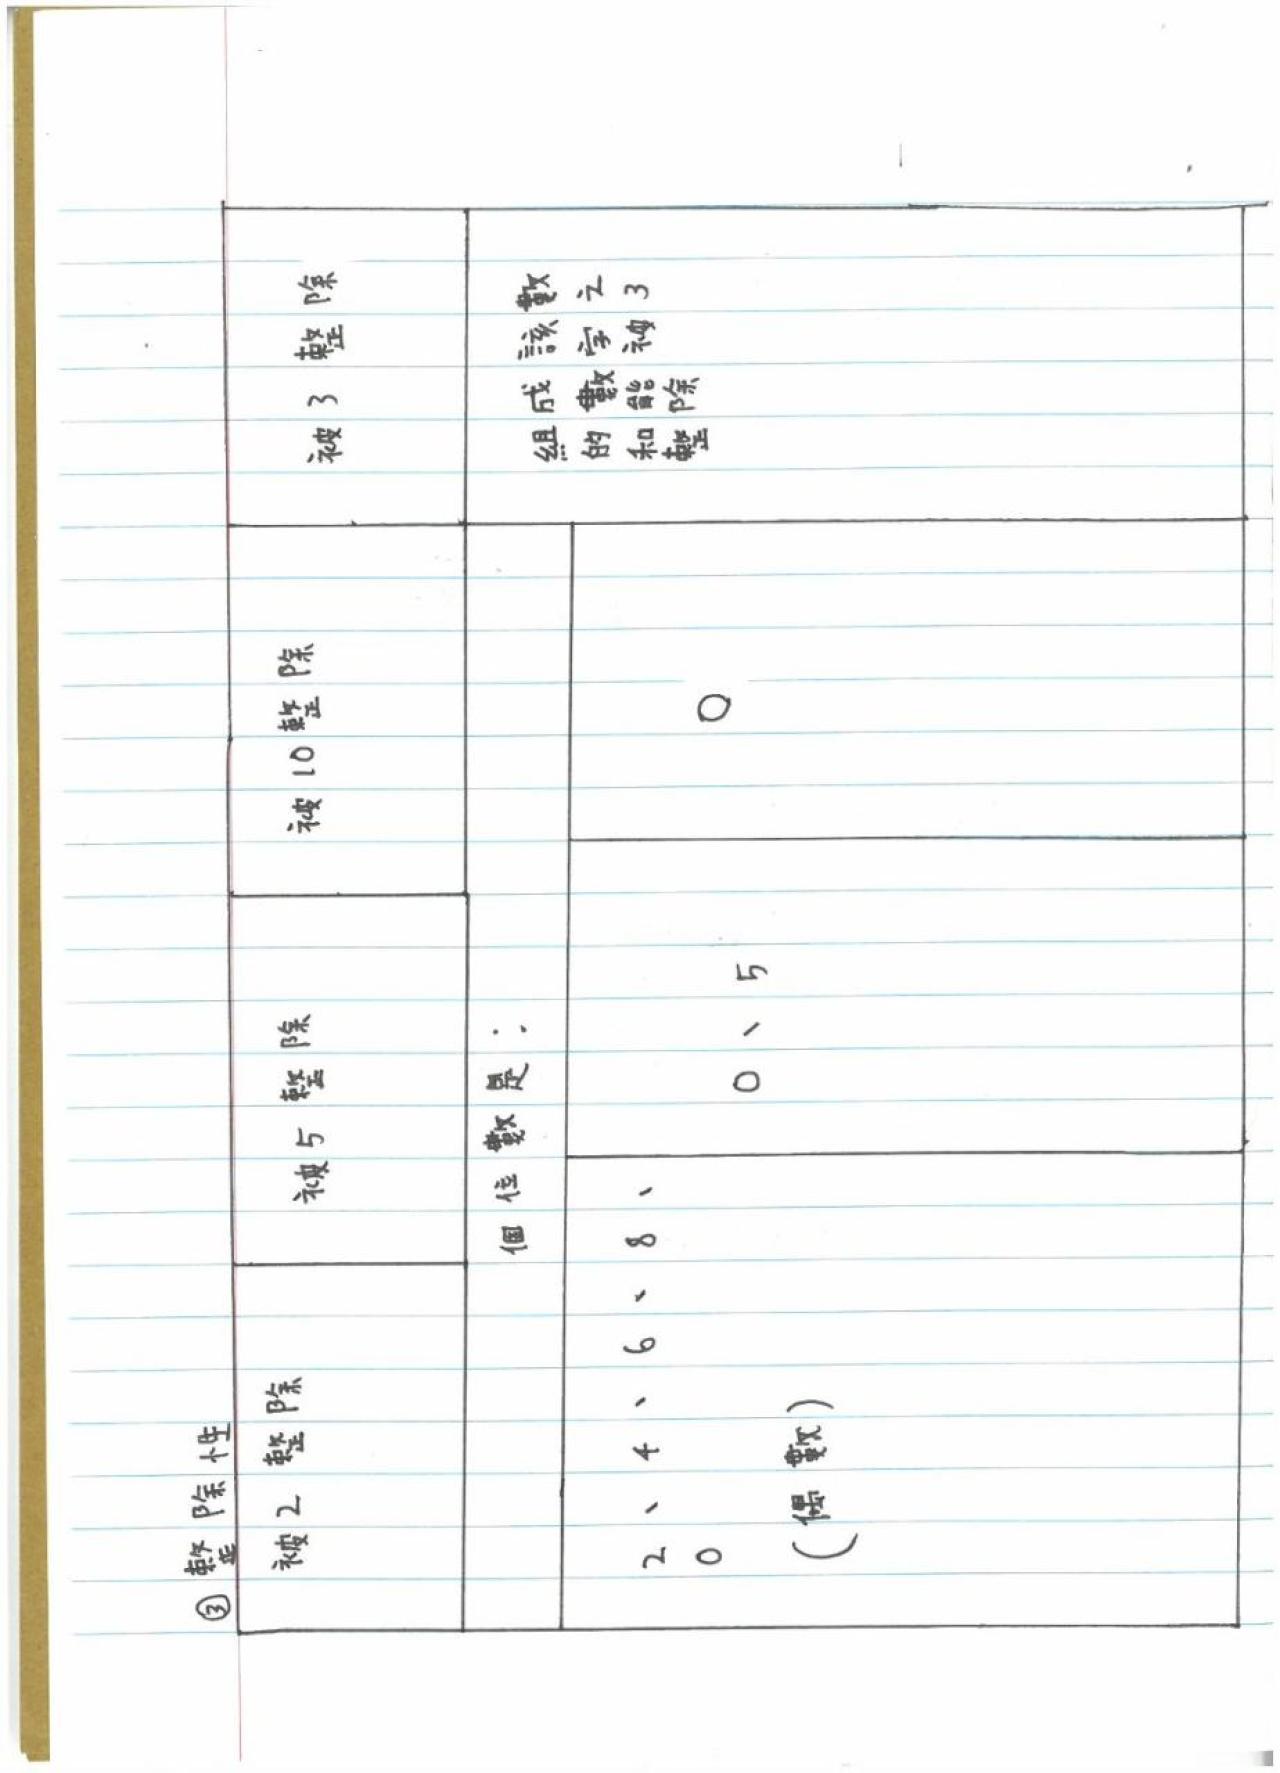 ③ 整除性
被2整除 被5整除 被10整除 被3整除
個位數是：
2、4、6、8、
0
(偶數)
0、5
0
組成該數
的數字之
和能被3
整除